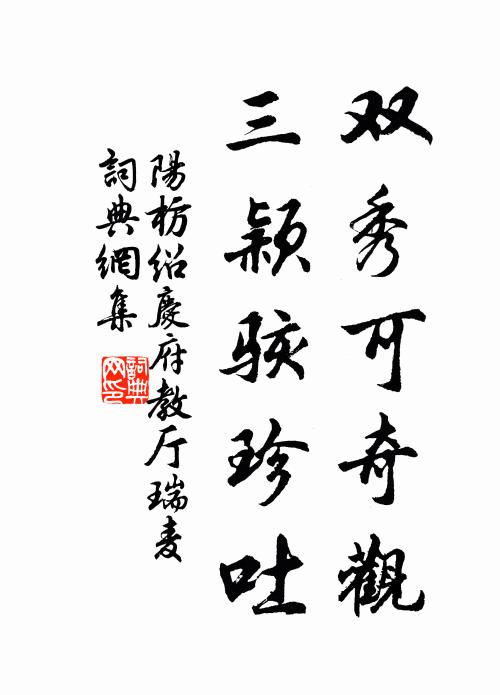 双秀可奇觀
三颖骇珍吐
陽枋绍慶府教厅瑞麦
詞典網集
詞典网印